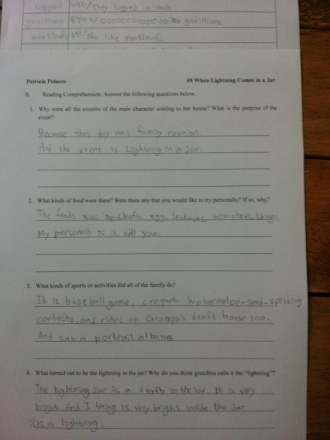 Patricia Polacco #8 When Lightning Comes in a Jar
II. Reading Comprehension: Answer the following questions below.
1. Why were all the cousins of the main character coming to her house? What is the purpose of the
event?
Because this day was family reunion.
And the event is Lightning in a Jar.
2. What kinds of food were there? Were there any that you would like to try personally? If so, why?
The foods was meatballs, egg,
My personally is
3. What kinds of sports or activities did all of the family do?
It is baseball game, croquet, watermelon-seed-spitting
contests, and rides on Grampa's draft horse
And saw a portrait albums
4. What turned out to be the lightning in the jar? Why do you think grandma calls it the "lightning"?
The lightning Jar is a firefly in the Jar. It is very
bright. And I thing is very bright inside the Jar
is a lightning.